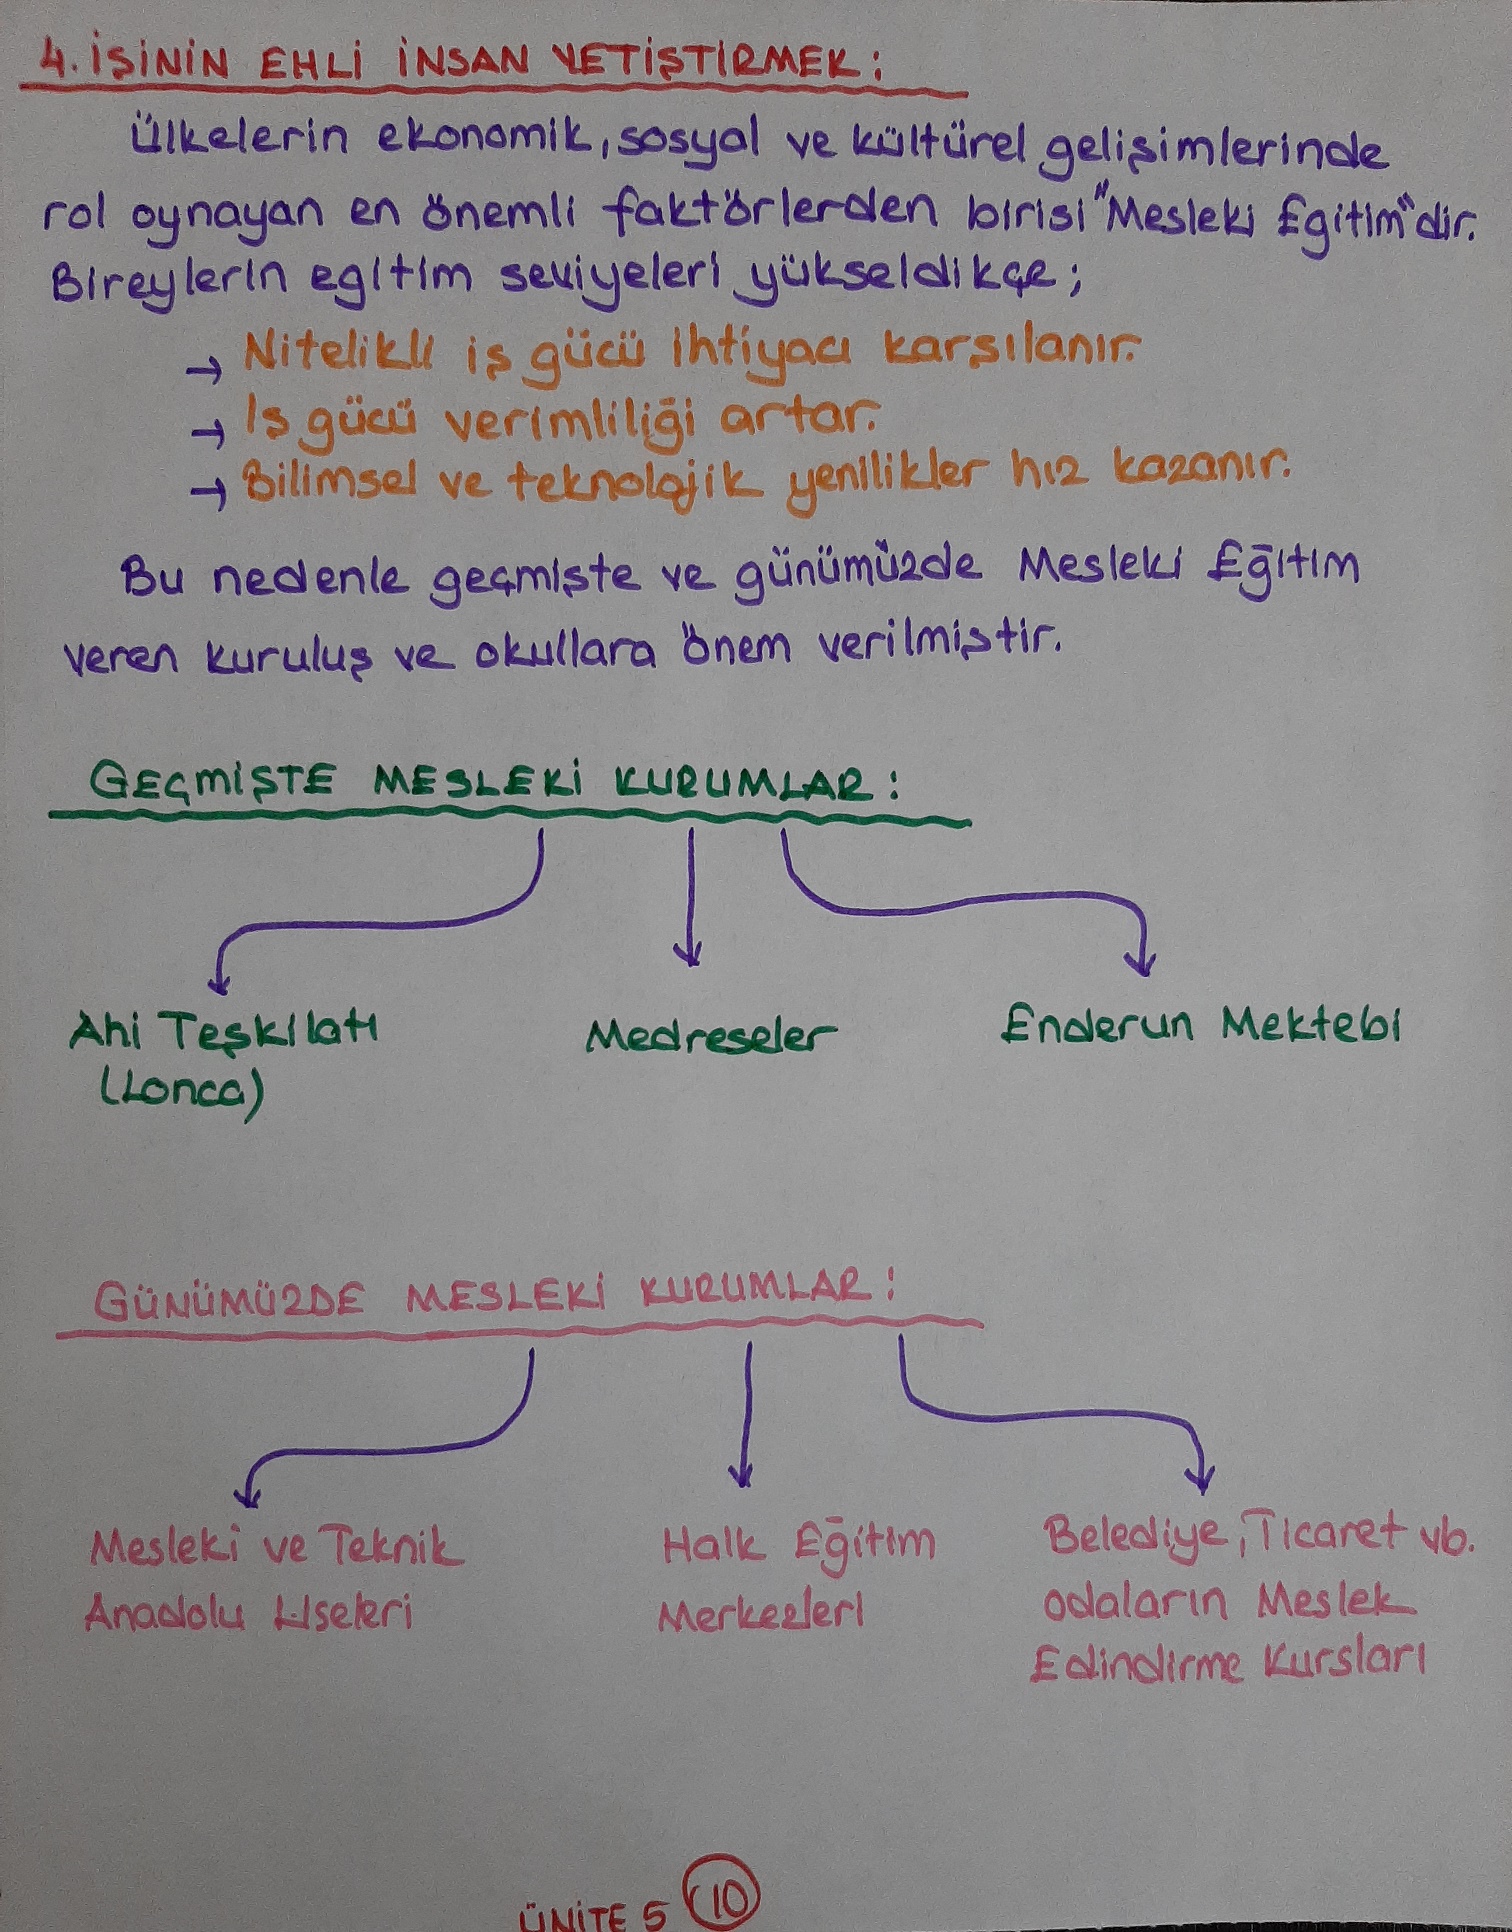 4. İŞİNİN EHLİ İNSAN YETİŞTİRMEK:
Ülkelerin ekonomik, sosyal ve kültürel gelişimlerinde
rol oynayan en önemli faktörlerden birisi "Mesleki Egitim"dir.
Bireylerin egitim seviyeleri yükseldikçe;
→ Nitelikli iş gücü ihtiyacı karşılanır.
→ İş gücü verimliliği artar.
→ Bilimsel ve teknolojik yenilikler hız kazanır.
Bu nedenle geçmişte ve günümüzde Mesleki Eğitim
veren kuruluş ve okullara önem verilmiştir.
GEÇMİŞTE MESLEKİ KURUMLAR:
Ahi Teşkilatı Medreseler Enderun Mektebi
(Lonca)
GÜNÜMÜZDE MESLEKİ KURUMLAR:
Mesleki ve Teknik Halk Eğitim Belediye, Ticaret vb.
Anadolu Liseleri Merkezleri odaların Meslek
Edindirme Kursları
ÜNİTE 5 10